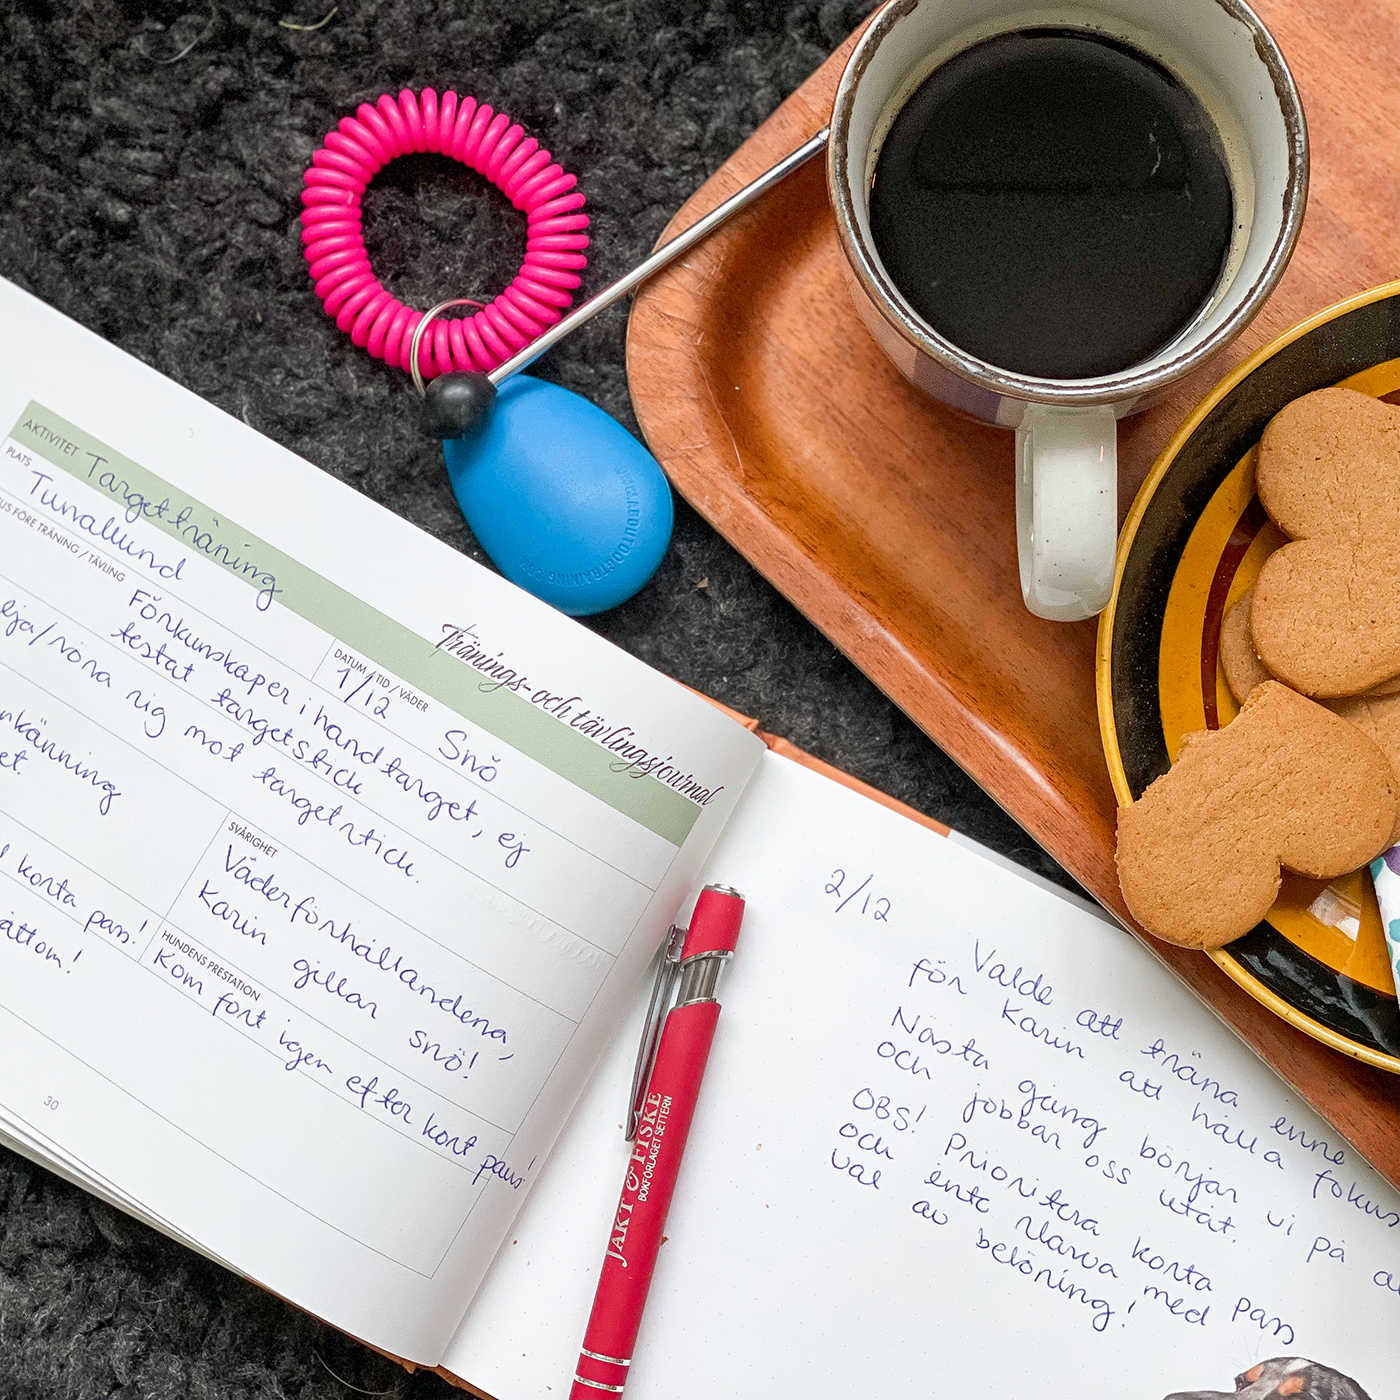 AKTIVITET Targetträning
PLATS
Tunallund
US FÖRE TRÄNING / TÄVLING
DATUM / TID / VÄDER
1/12 Snö
Förkunskaper i handtarget, ej
testat targetstick
lja/röra sig mot targetstick.
nkänning
et.
konta pass!
åttom!
SVÅRIGHET
Väderförhållandena,
Karin gillar snö!
HUNDENS PRESTATION
Kom fort igen efter kort paus!
30
Tränings- och tävlingsjournal
JAKT & FISKE
BOKFÖRLAGET SETTERN
2/12
Valde att träna enne
för Karin att hålla fokus
Nästa gång börjar vi på a
och jobbar oss utåt.
OBS! Prioritera korta pass
och inte slarva med
val av belöning!